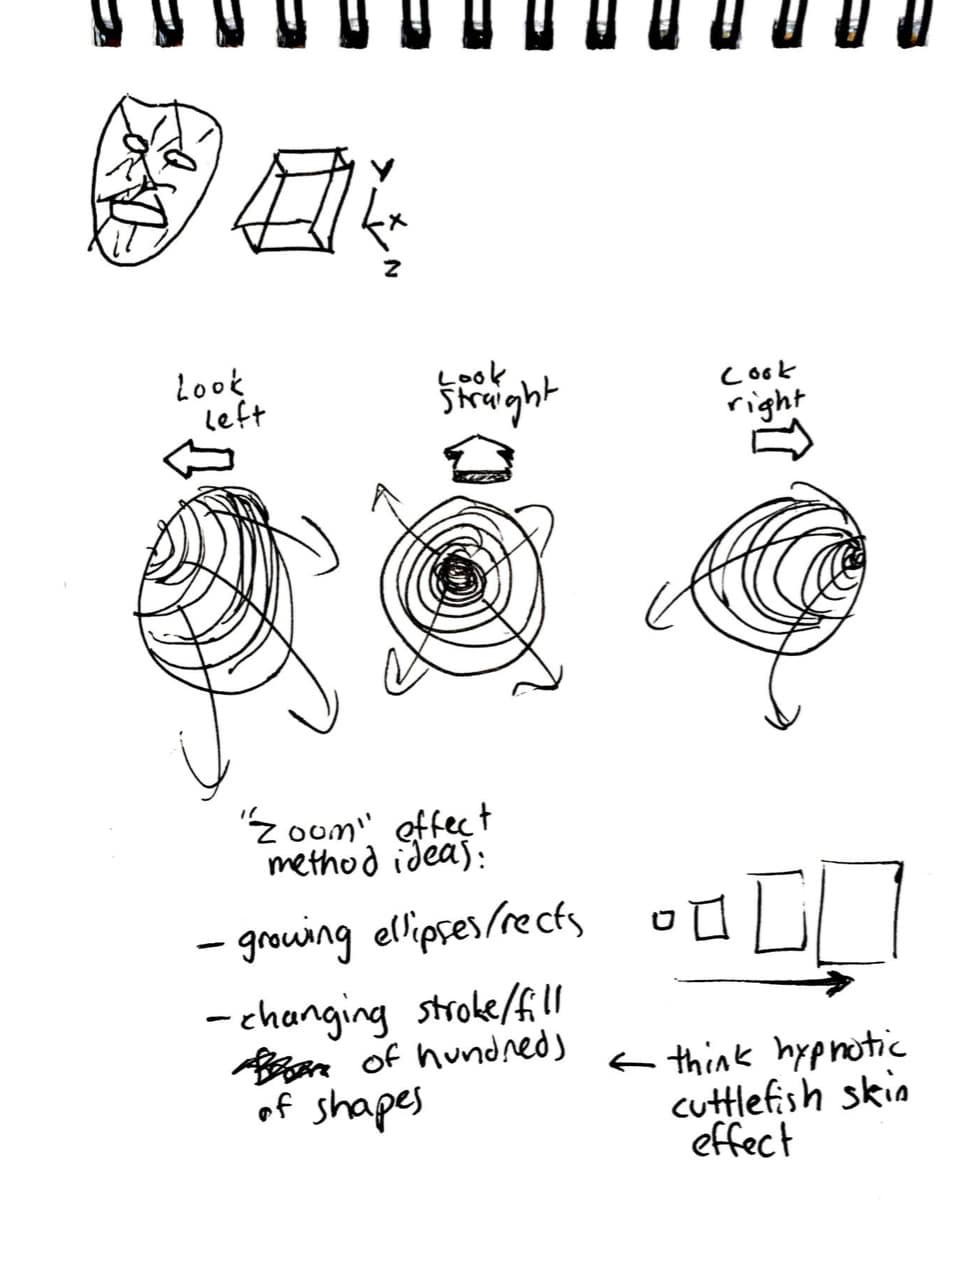 Y
X
Z
Look
left
Look
Straight
Look
right
"Zoom" effect
method ideas:
- growing ellipses/rects
- changing stroke/fill
of hundreds
of shapes
← think hypnotic
cuttlefish skin
effect